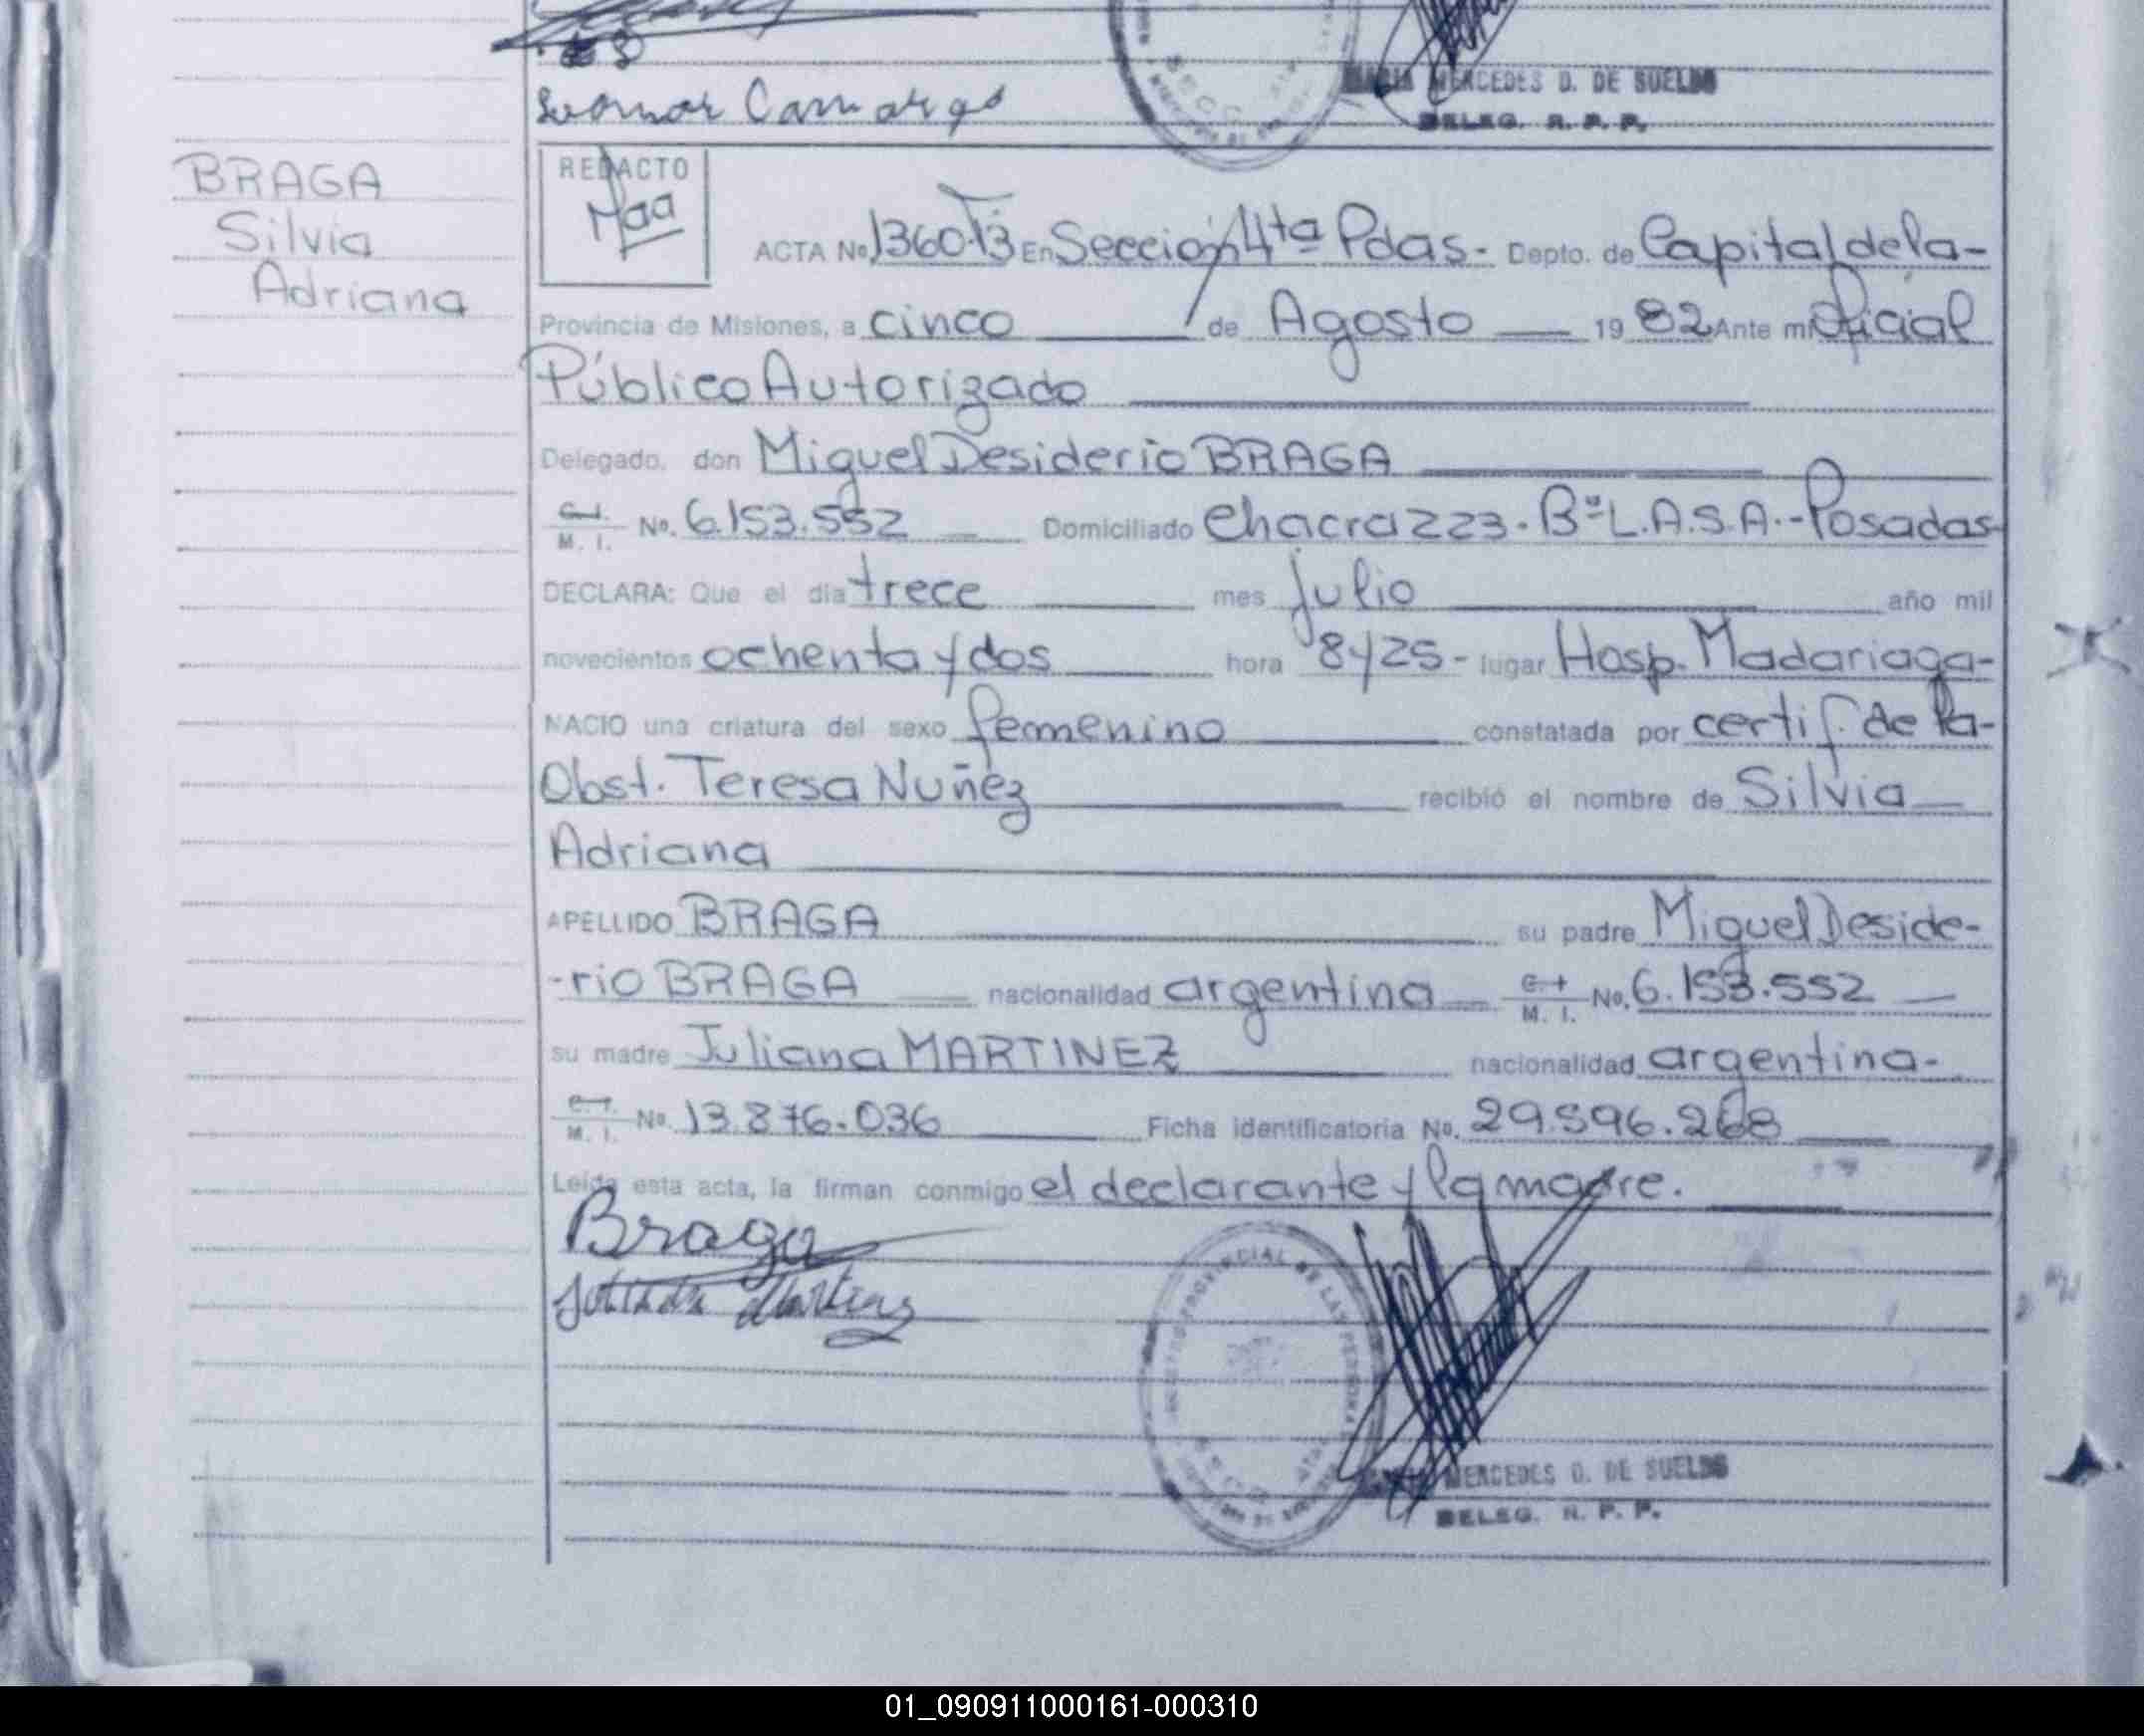 Leonor Camargo
MERCEDES D. DE SUELDO
DELEG. R. P. P.
BRAGA
Silvia
Adriana
REDACTO
ACTA No 1360 T3 En Sección 4ta Pdas.- Depto. de Capital de la-
Provincia de Misiones, a cinco de Agosto 1982 Ante mi Oficial
Público Autorizado
Delegado, don Miguel Desiderio BRAGA
C. I. M. I. No. 6.153.552 Domiciliado Chacra 223. Bº L.A.S.A.- Posadas
DECLARA: Que el día trece mes julio año mil
novecientos ochenta y dos hora 8y25- lugar Hosp. Madariaga-
NACIO una criatura del sexo femenino constatada por certif. de la-
Obst. Teresa Nuñez recibió el nombre de Silvia
Adriana
APELLIDO BRAGA su padre Miguel Deside-
-rio BRAGA nacionalidad argentina C. I. M. I. No. 6.153.552
su madre Juliana MARTINEZ nacionalidad argentina-
C. I. M. I. No. 13.876.036 Ficha identificatoria No. 29.596.268
Leída esta acta, la firman conmigo el declarante y la madre.
Braga
Juliana Martinez
PROVINCIAL DE LAS PERSONAS
MERCEDES D. DE SUELDO
DELEG. R. P. P.
01_090911000161-000310